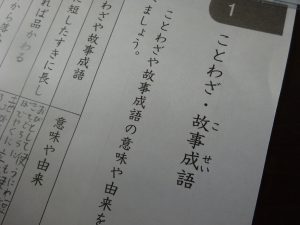 1
ことわざ・故事成語
こ
せい
ことわざや故事成語の意味や由来を
ましょう。
わざや故事成語
意味や由来
短したすきに長し
れば品かわる
から